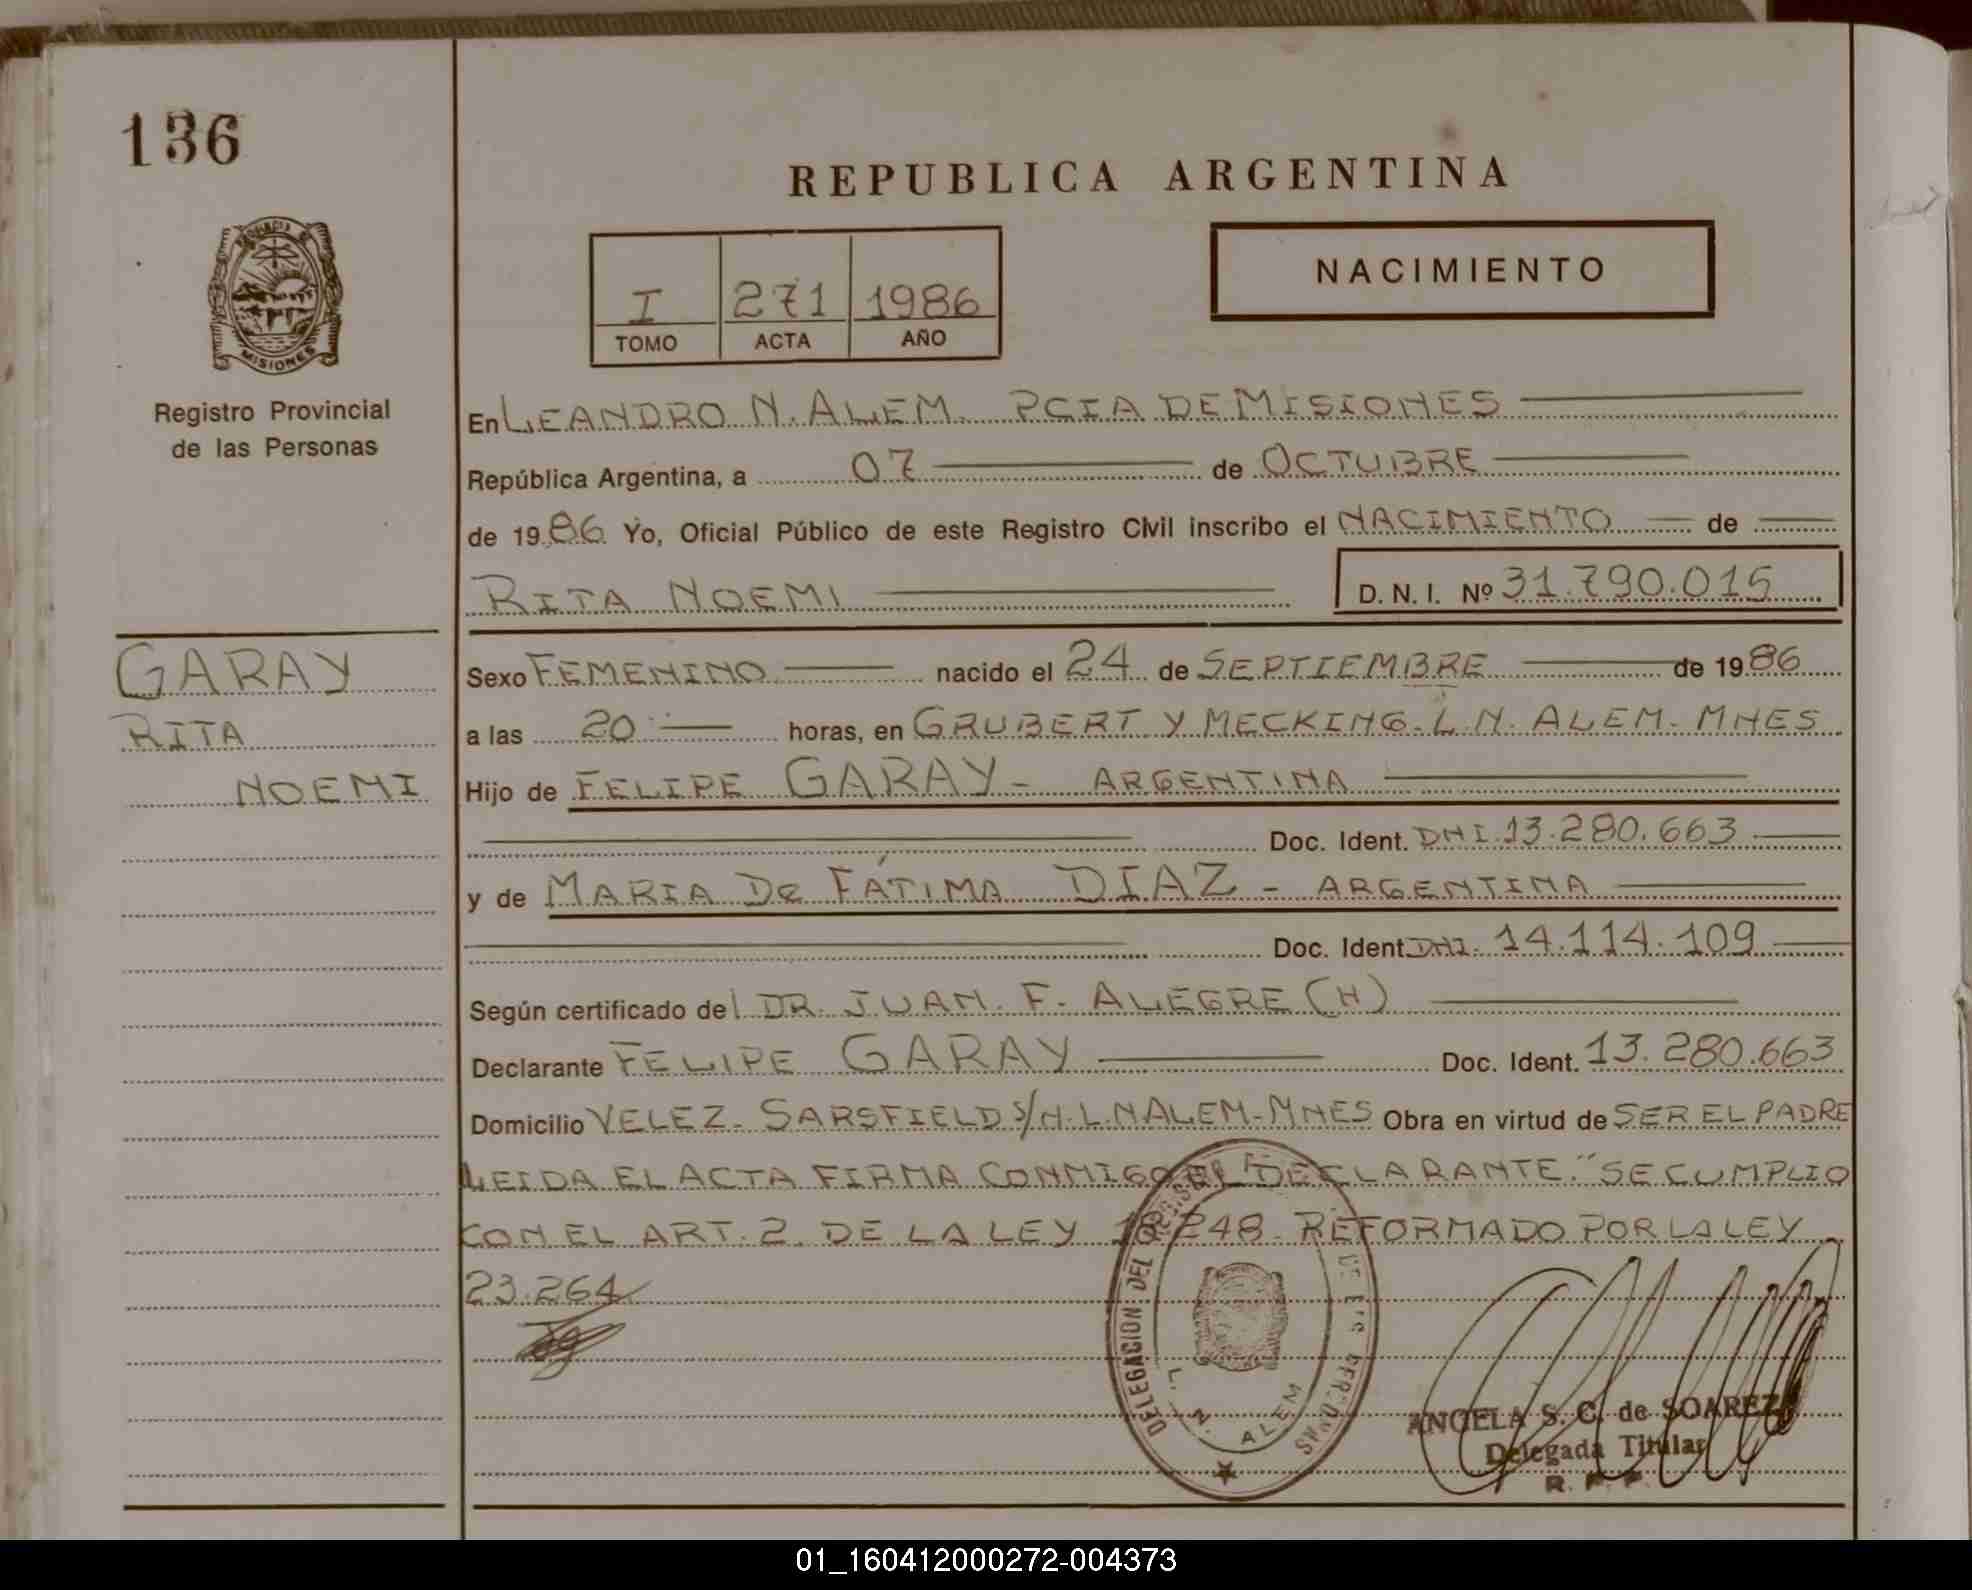 136
REPUBLICA ARGENTINA
PROVINCIA DE
MISIONES
Registro Provincial
de las Personas
I 271 1986
TOMO ACTA AÑO
NACIMIENTO
En LEANDRO N. ALEM. PCIA DE MISIONES
República Argentina, a 07 de OCTUBRE
de 1986 Yo, Oficial Público de este Registro Civil inscribo el NACIMIENTO de
RITA NOEMI D. N. I. Nº 31.790.015
GARAY
RITA
NOEMI
Sexo FEMENINO nacido el 24 de SEPTIEMBRE de 1986
a las 20 horas, en GRUBERT Y MECKING. L.N. ALEM. MNES
Hijo de FELIPE GARAY - ARGENTINA
Doc. Ident. DNI. 13.280.663
y de MARIA De FÁTIMA DIAZ - ARGENTINA
Doc. Ident. DNI. 14.114.109
Según certificado del DR. JUAN. F. ALEGRE (H)
Declarante FELIPE GARAY Doc. Ident. 13.280.663
Domicilio VELEZ. SARSFIELD S/N. L.N ALEM-MNES Obra en virtud de SER EL PADRE
LEIDA EL ACTA FIRMA CONMIGO EL DECLARANTE. "SE CUMPLIO
CON EL ART. 2. DE LA LEY 18.248. REFORMADO POR LA LEY
23.264
DELEGACION DEL DE LAS PERSONAS
L. N. ALEM
ANGELA S. C. de SOAREZ
Delegada Titular
R. P. P.
01_160412000272-004373